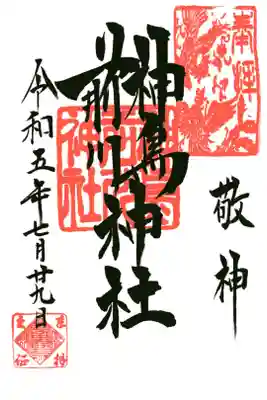 敬神
神鳥
前川
神社
令和五年七月廿九日